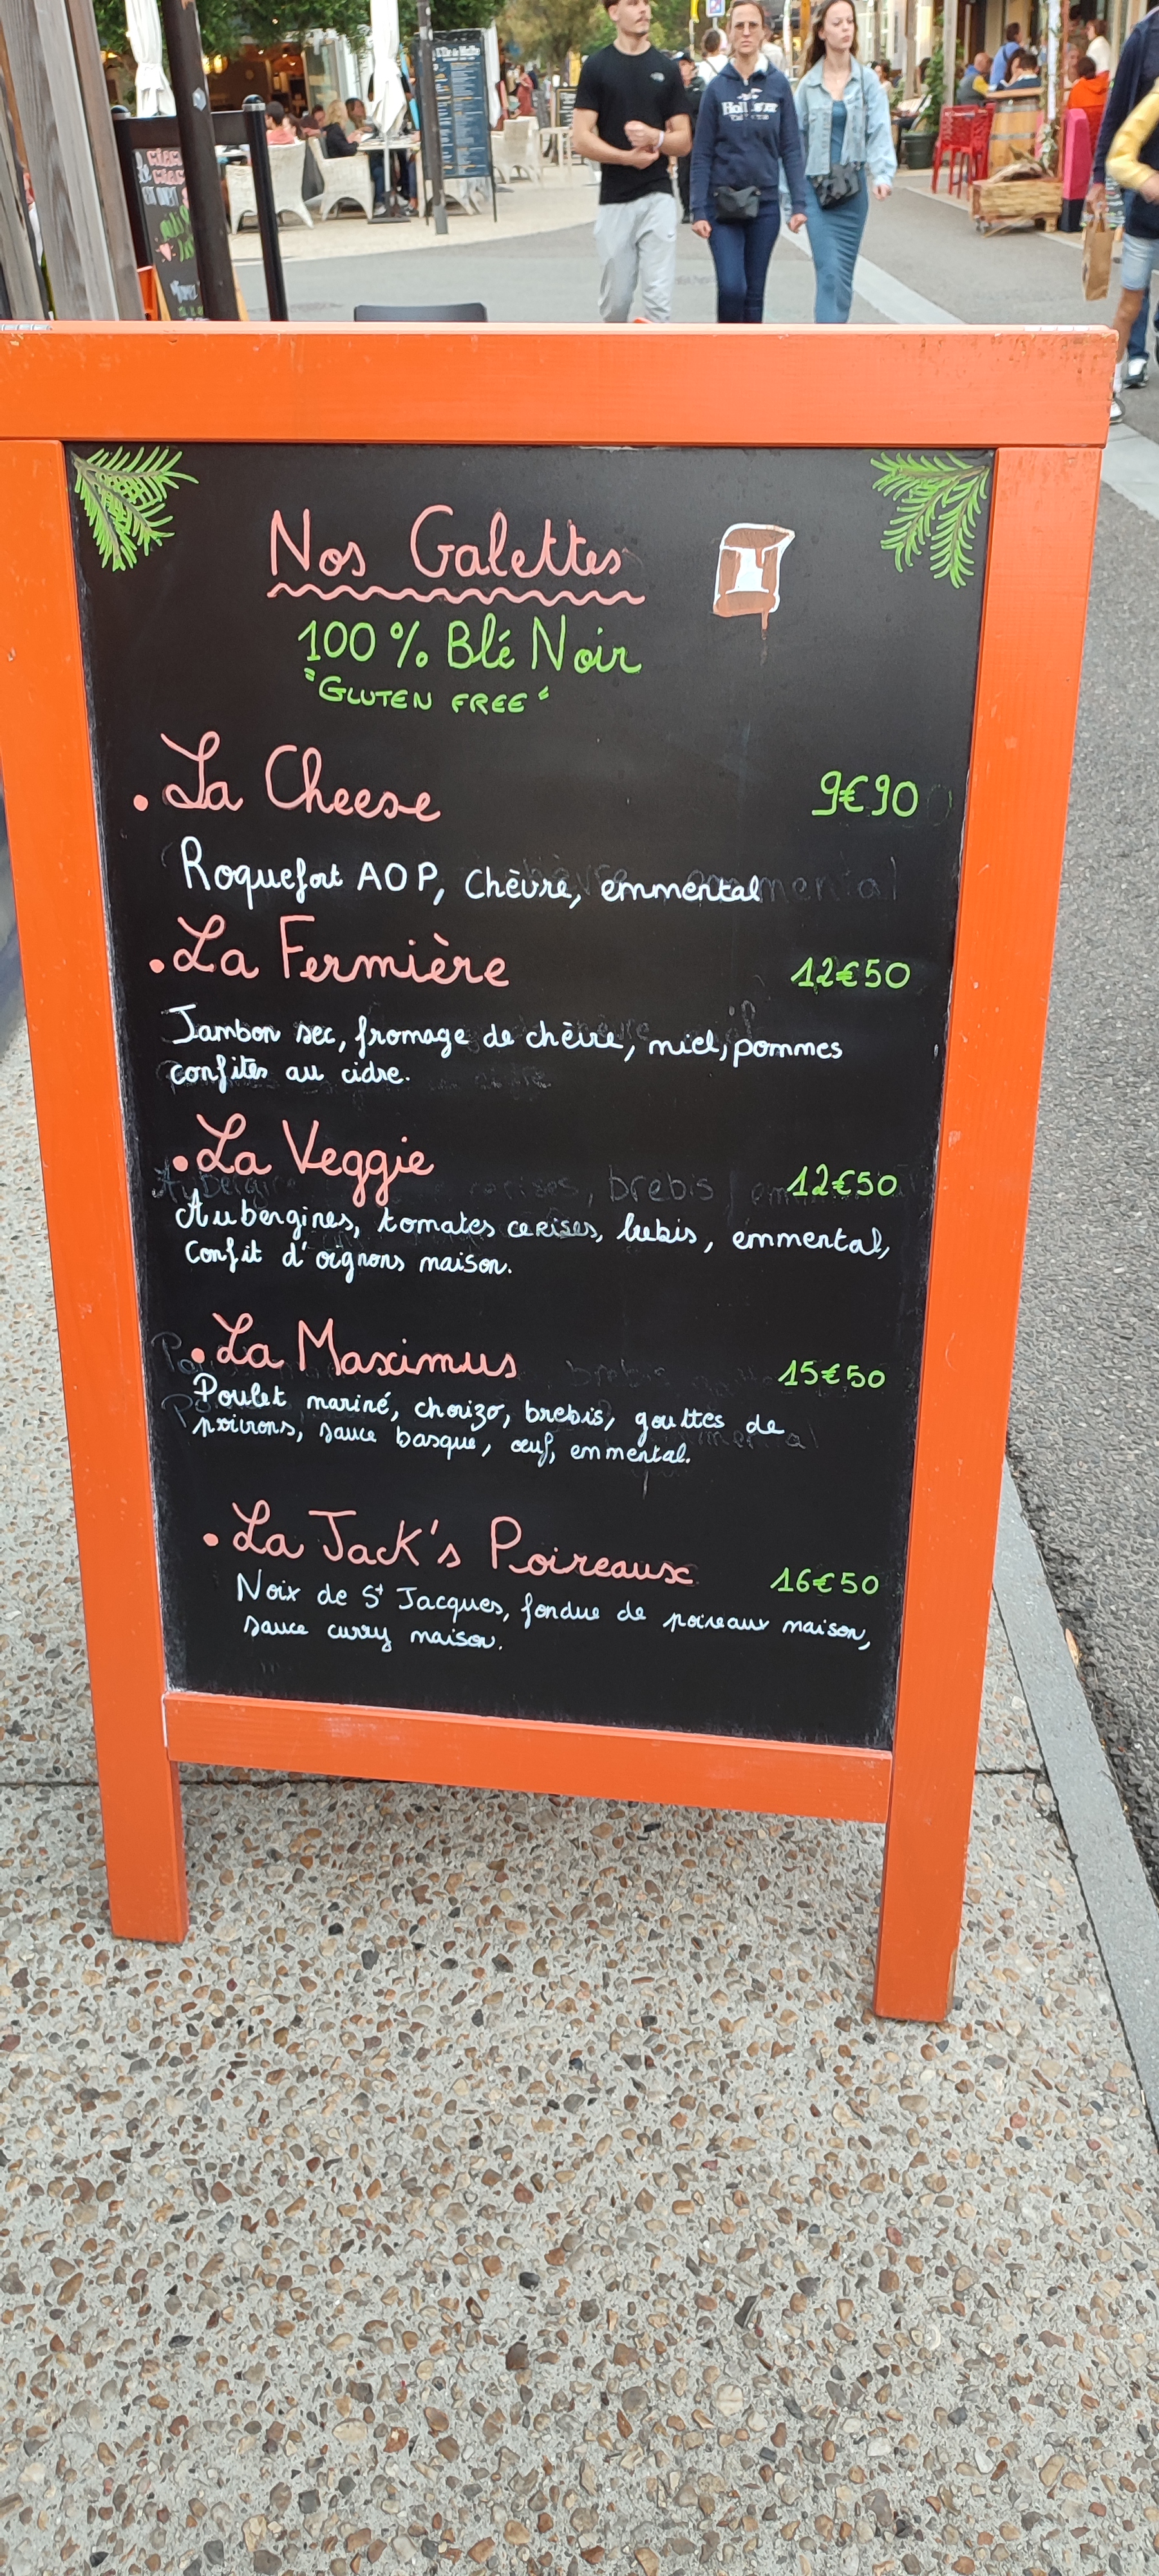 Nos Galettes
100% Blé Noir
"GLUTEN FREE"
. La Cheese 9€90
Roquefort AOP, Chèvre, emmental
. La Fermière 12€50
Jambon sec, fromage de chèvre, miel, pommes
confites au cidre.
. La Veggie 12€50
Aubergines, tomates cerises, brebis, emmental,
confit d'oignons maison.
. La Maximus 15€50
Poulet mariné, chorizo, brebis, gouttes de
poivrons, sauce basque, œuf, emmental.
. La Jack's Poireaux 16€50
Noix de St Jacques, fondue de poireaux maison,
sauce curry maison.